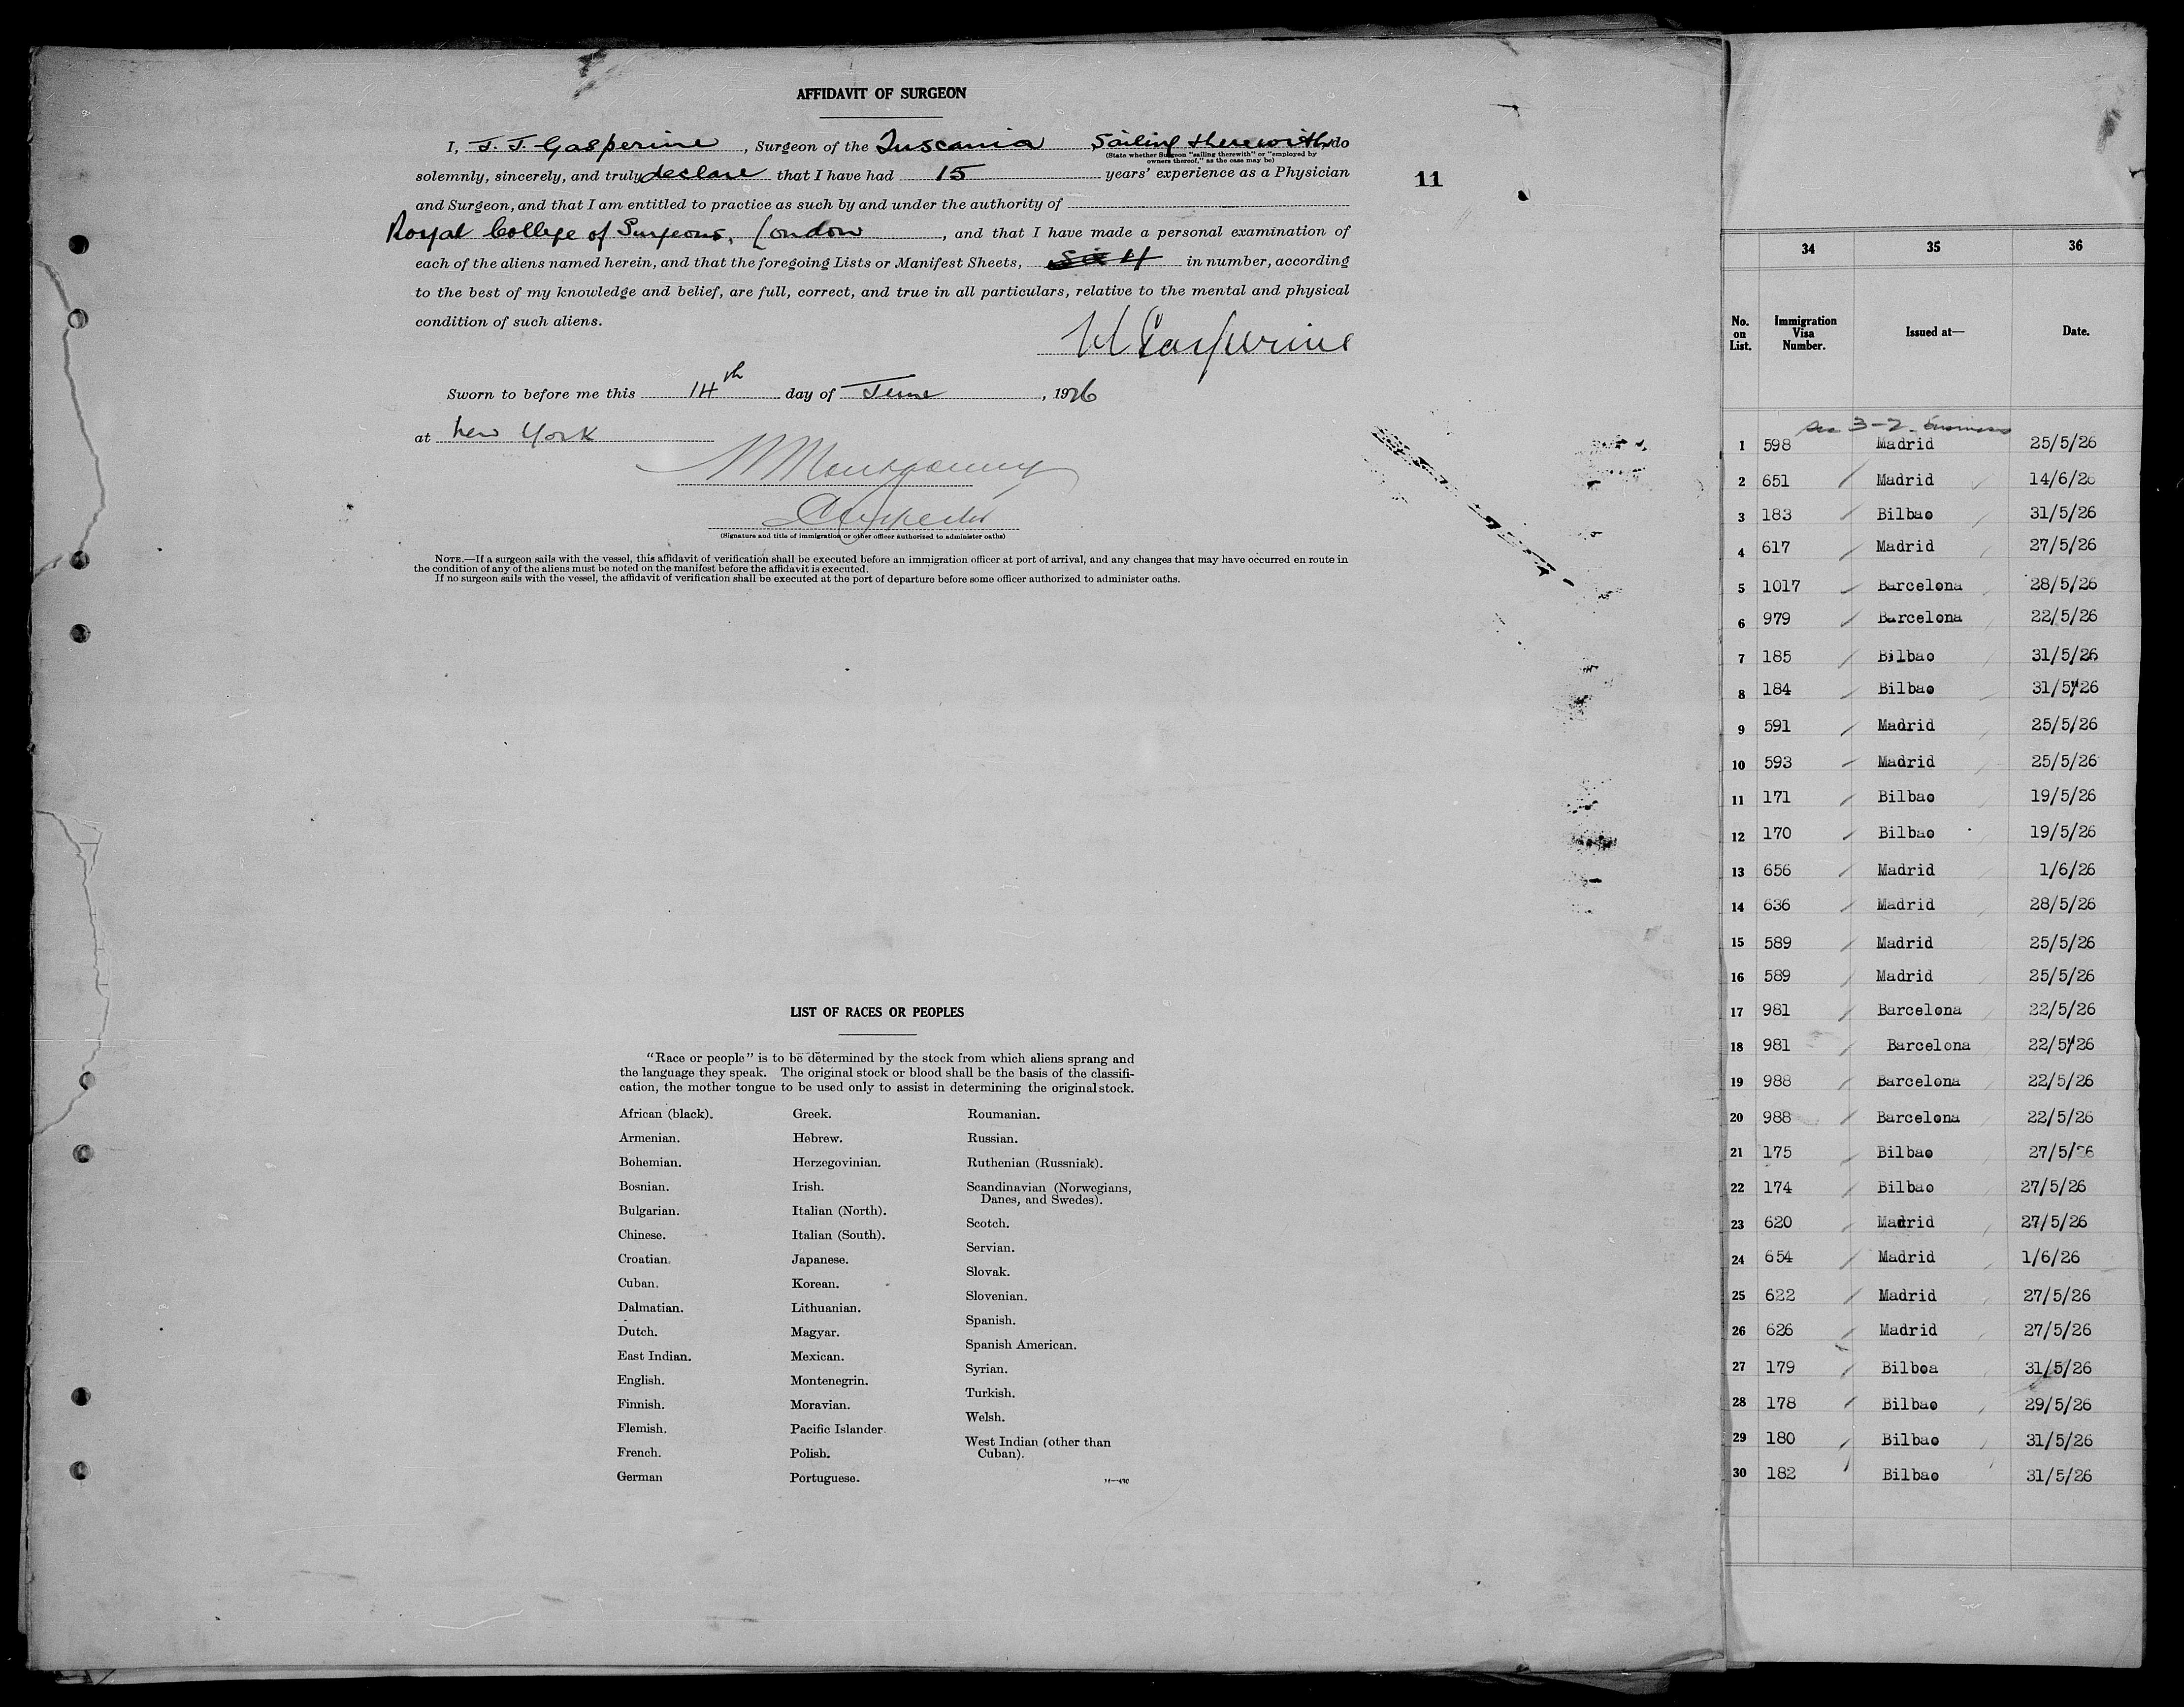 AFFIDAVIT OF SURGEON
I, J. J. Gasperine, Surgeon of the Tuscania Sailing therewith, do
(State whether Surgeon "sailing therewith" or "employed by
owners thereof," as the case may be)
solemnly, sincerely, and truly declare that I have had 15 years' experience as a Physician
11
and Surgeon, and that I am entitled to practice as such by and under the authority of
Royal College of Surgeons, London, and that I have made a personal examination of
each of the aliens named herein, and that the foregoing Lists or Manifest Sheets, in number, according
to the best of my knowledge and belief, are full, correct, and true in all particulars, relative to the mental and physical
condition of such aliens.
Gasperine
Sworn to before me this 14th day of June, 1926
at New York
Montgomery
Inspector
(Signature and title of immigration or other officer authorized to administer oaths)
NOTE.—If a surgeon sails with the vessel, this affidavit of verification shall be executed before an immigration officer at port of arrival, and any changes that may have occurred en route in
the condition of any of the aliens must be noted on the manifest before the affidavit is executed.
If no surgeon sails with the vessel, the affidavit of verification shall be executed at the port of departure before some officer authorized to administer oaths.
LIST OF RACES OR PEOPLES
"Race or people" is to be determined by the stock from which aliens sprang and
the language they speak. The original stock or blood shall be the basis of the classifi-
cation, the mother tongue to be used only to assist in determining the original stock.
African (black).
Armenian.
Bohemian.
Bosnian.
Bulgarian.
Chinese.
Croatian.
Cuban.
Dalmatian.
Dutch.
East Indian.
English.
Finnish.
Flemish.
French.
German
Greek.
Hebrew.
Herzegovinian.
Irish.
Italian (North).
Italian (South).
Japanese.
Korean.
Lithuanian.
Magyar.
Mexican.
Montenegrin.
Moravian.
Pacific Islander.
Polish.
Portuguese.
Roumanian.
Russian.
Ruthenian (Russniak).
Scandinavian (Norwegians,
Danes, and Swedes).
Scotch.
Servian.
Slovak.
Slovenian.
Spanish.
Spanish American.
Syrian.
Turkish.
Welsh.
West Indian (other than
Cuban).
34 35 36
No. on List. Immigration Visa Number. Issued at— Date.
3-2
1 598 Madrid 25/5/26
2 651 Madrid 14/6/26
3 183 Bilbao 31/5/26
4 617 Madrid 27/5/26
5 1017 Barcelona 28/5/26
6 979 Barcelona 22/5/26
7 185 Bilbao 31/5/26
8 184 Bilbao 31/5/26
9 591 Madrid 25/5/26
10 593 Madrid 25/5/26
11 171 Bilbao 19/5/26
12 170 Bilbao 19/5/26
13 656 Madrid 1/6/26
14 636 Madrid 28/5/26
15 589 Madrid 25/5/26
16 589 Madrid 25/5/26
17 981 Barcelona 22/5/26
18 981 Barcelona 22/5/26
19 988 Barcelona 22/5/26
20 988 Barcelona 22/5/26
21 175 Bilbao 27/5/26
22 174 Bilbao 27/5/26
23 620 Madrid 27/5/26
24 654 Madrid 1/6/26
25 622 Madrid 27/5/26
26 626 Madrid 27/5/26
27 179 Bilboa 31/5/26
28 178 Bilbao 29/5/26
29 180 Bilbao 31/5/26
30 182 Bilbao 31/5/26